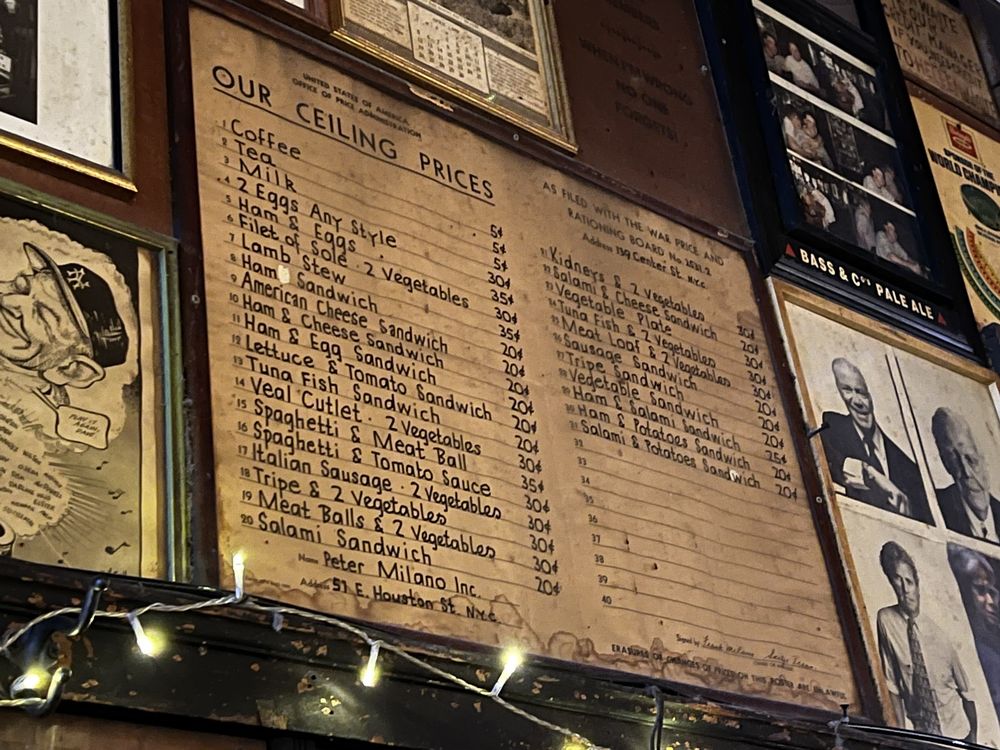 UNITED STATES OF AMERICA
OFFICE OF PRICE ADMINISTRATION
OUR CEILING PRICES
1 Coffee 5¢
2 Tea 5¢
3 Milk 5¢
4 2 Eggs Any Style 30¢
5 Ham & Eggs 35¢
6 Filet of Sole · 2 Vegetables 30¢
7 Lamb Stew 35¢
8 Ham Sandwich 20¢
9 American Cheese Sandwich 20¢
10 Ham & Cheese Sandwich 20¢
11 Ham & Egg Sandwich 20¢
12 Lettuce & Tomato Sandwich 20¢
13 Tuna Fish Sandwich 20¢
14 Veal Cutlet · 2 Vegetables 30¢
15 Spaghetti & Meat Ball 35¢
16 Spaghetti & Tomato Sauce 30¢
17 Italian Sausage · 2 Vegetables 30¢
18 Tripe & 2 Vegetables 30¢
19 Meat Balls & 2 Vegetables 30¢
20 Salami Sandwich 20¢
Name Peter Milano Inc.
Address 57 E. Houston St. N.Y.C.
AS FILED WITH THE WAR PRICE AND
RATIONING BOARD No
Address 139 Center St. N.Y.C.
21 Kidneys & 2 Vegetables 30¢
22 Salami & Cheese Sandwich 20¢
23 Vegetable Plate 30¢
24 Tuna Fish & 2 Vegetables 30¢
25 Meat Loaf & 2 Vegetables 30¢
26 Sausage Sandwich 20¢
27 Tripe Sandwich 20¢
28 Vegetable Sandwich 20¢
29 Ham & Salami Sandwich 25¢
30 Ham & Potatoes Sandwich 20¢
31 Salami & Potatoes Sandwich 20¢
32
33
34
35
36
37
38
39
40
Signed by
ERASURES OR CHANGES OF PRICES ON THIS ROSTER ARE UNLAWFUL
WHEN I'M WRONG
NO ONE
FORGETS!
BASS & Co's PALE ALE
WORLD CHAMP
PLAY IT
AGAIN,
DAVE